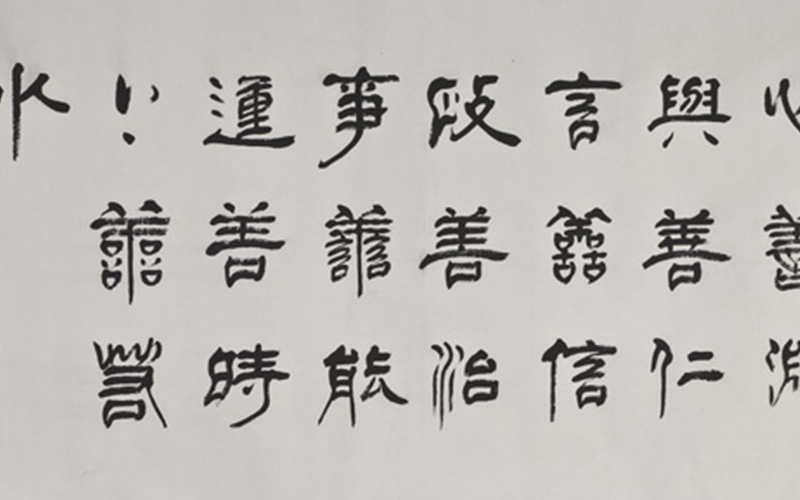 心善淵
與善仁
言善信
政善治
事善能
動善時
上善若
水